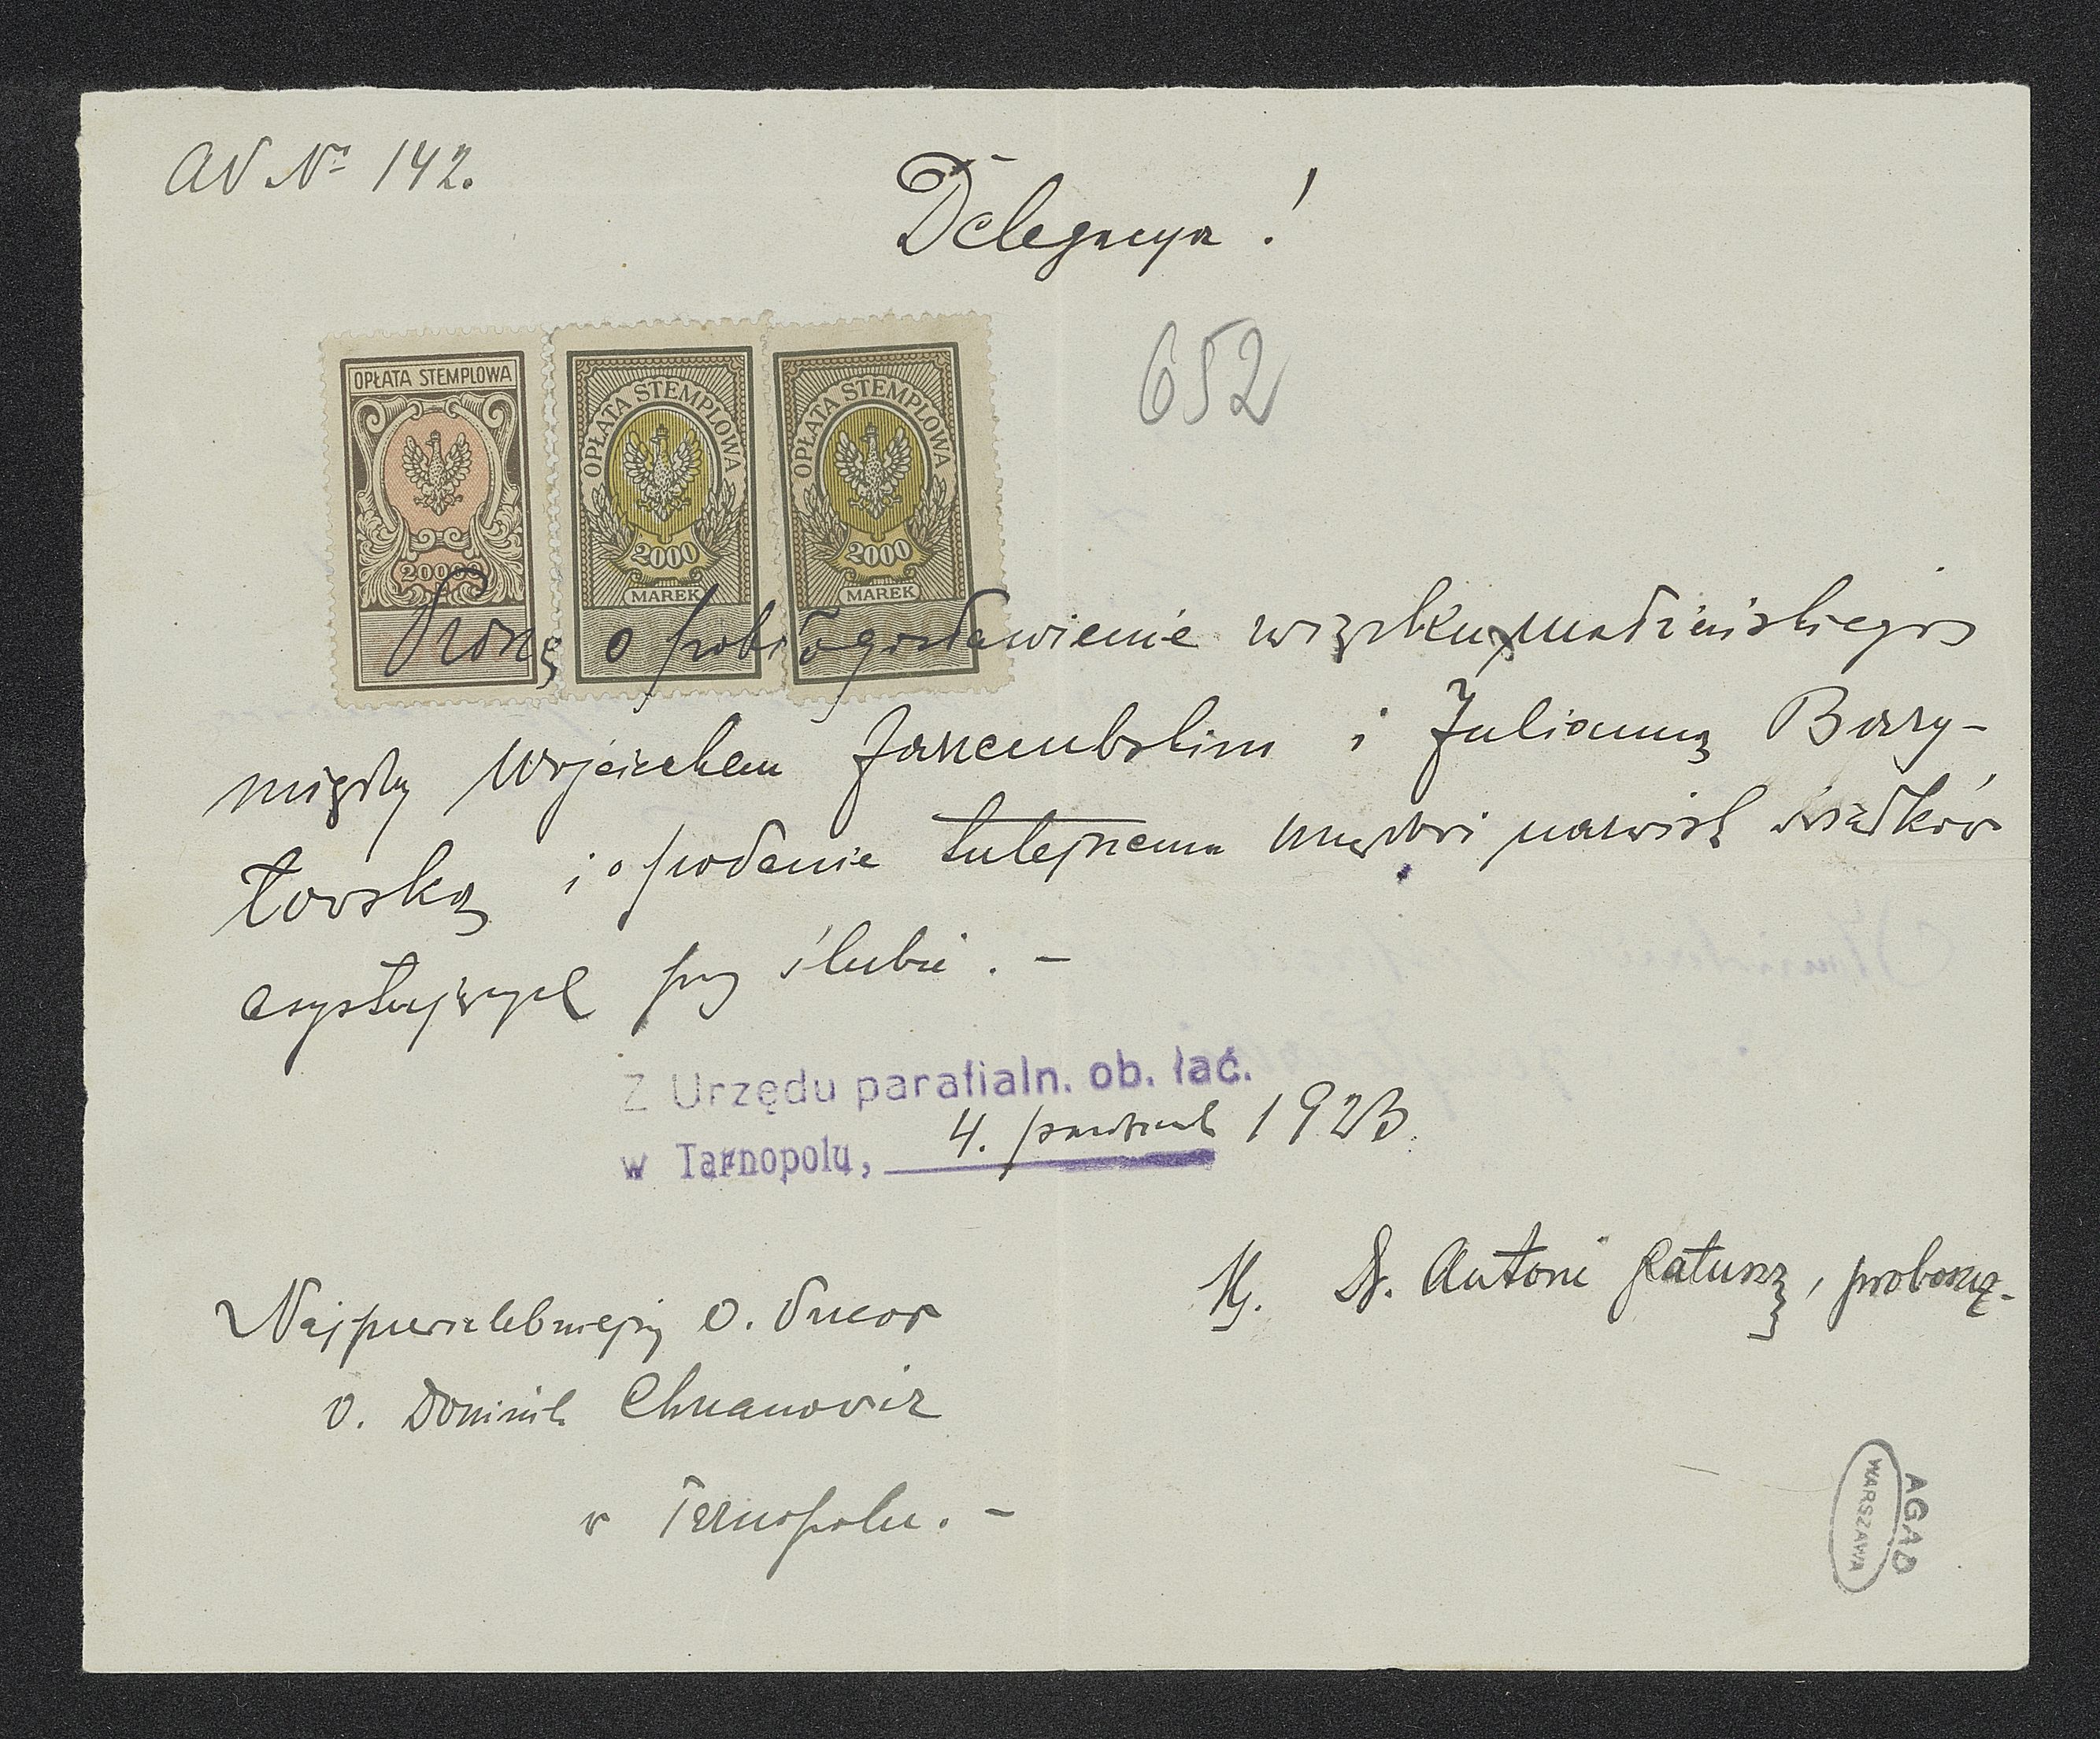 AV № 142.
Delegacya!
652
OPŁATA STEMPLOWA
20000
OPŁATA STEMPLOWA
2000
MAREK
OPŁATA STEMPLOWA
2000
MAREK
Proszę o pobłogosławienie węzłku małżeńskiego
między Wojciechem Jarzembskim i Julianną Bory-
łowską i o podanie tutejszemu urzędowi nazwisk świadków
asystujących przy ślubie. —
Z Urzędu parafialn. ob. łać.
w Tarnopolu, 4. 1923.
Ks. Dr. Antoni Ratuszny, proboszcz.
Najprzewielebniejszy O.
O. Dominik
w Tarnopolu. —
AGAD
WARSZAWA